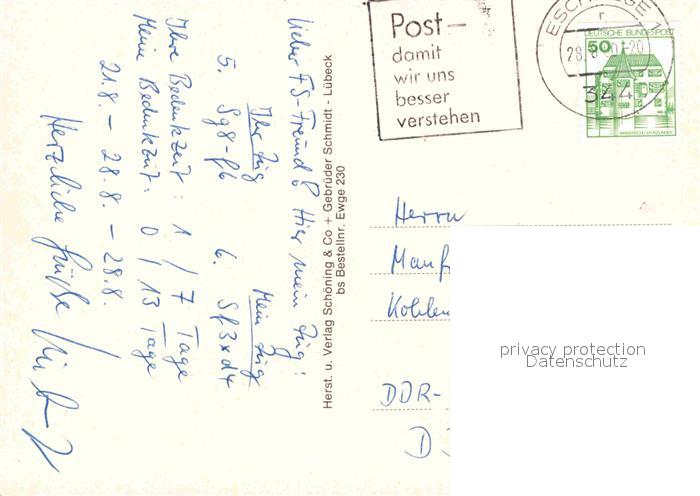 Lieber FS-Freund! Hier mein Zug:
Ihr Zug Mein Zug
5. Sg8-f6 6. Sf3xd4
Ihre Bedenkzeit: 1 / 7 Tage
Meine Bedenkzeit: 0 / 13 Tage
21.8. – 28.8. – 28.8.
Herzliche Grüße
Herst. u. Verlag Schöning & Co + Gebrüder Schmidt - Lübeck
bs Bestellnr. Ewge 230
Post-
damit
wir uns
besser
verstehen
ESCHWEGE 1
r
28. -20
344
DEUTSCHE BUNDESPOST
50
WASSERSCHLOSS INZLINGEN
Herrn
Manf
Kohlen
DDR-
D
privacy protection
Datenschutz